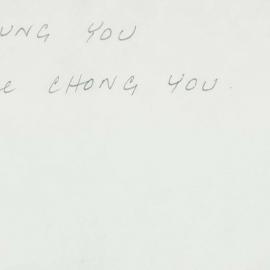 UNG YOU
e CHONG YOU.